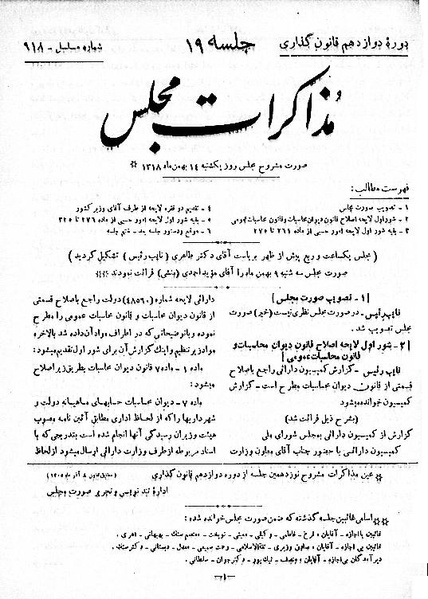 دورهٔ دوازدهم قانون گذاری
جلسه ۱۹
شماره مسلسل - ۹۱۸
مذاکرات مجلس
صورت مشروح مجلس روز یکشنبه ۱۴ بهمن ماه ۱۳۱۸
فهرست مطالب:
۱ - تصویب صورت مجلس
۲ - شور اول لایحه اصلاح قانون دیوان محاسبات و قانون محاسبات عمومی
۳ - بقیه شور اول لایحه امور حسبی از ماده ۲۶۱ تا ۲۷۵
۴ - تقدیم دو فقره لایحه از طرف آقای وزیر کشور
۵ - بقیه شور اول لایحه امور حسبی از ماده ۲۷۶ تا ۳۲۵
۶ - موقع و دستور جلسه بعد - ختم جلسه
(مجلس یکساعت و ربع پیش از ظهر بریاست آقای دکتر طاهری (نایب رئیس) تشکیل گردید)
صورت مجلس سه شنبه ۹ بهمن ماه را آقای مؤید احمدی (منشی) قرائت نمودند
[۱ - تصویب صورت مجلس]
نایب رئیس - در صورت مجلس نظری نیست (خیر) صورت
مجلس تصویب شد.
[۲ - شور اول لایحه اصلاح قانون دیوان محاسبات و
قانون محاسبات عمومی]
نایب رئیس - گزارش کمیسیون دارائی راجع باصلاح
قسمتی از قانون دیوان محاسبات مطرح است - گزارش
کمیسیون خوانده میشود
(بشرح ذیل قرائت شد)
گزارش از کمیسیون دارائی بمجلس شورای ملی
کمیسیون دارائی با حضور جناب آقای معاون وزارت
دارائی لایحه شماره (۴۸۵۶۰) دولت راجع باصلاح قسمتی
از قانون دیوان محاسبات و قانون محاسبات عمومی را مطرح
نموده و با توضیحاتی که در اطراف مواد آن داده شد بالاخره
مواد زیر تنظیم و اینک گزارش آن برای شور اول تقدیم میشود:
ماده ۱ - ماده ۷ قانون دیوان محاسبات بطریق زیر اصلاح
میشود:
ماده ۷ - دیوان محاسبات حسابهای ماهیانه دولت و
شهرداریها را که از لحاظ اداری مطابق آئین نامه مصوب
هیئت وزیران رسیدگی آنها انجام شده است بتدریجی که با
اسناد مربوطه از طرف وزارت دارائی ارسال میشود از لحاظ
عین مذاکرات مشروح نوزدهمین جلسه از دوره دوازدهم قانون گذاری
اداره تند نویسی و تحریر صورت مجلس
اسامی غائبین جلسه گذشته که ضمن صورت مجلس خوانده شده:
غائبین با اجازه - آقایان:
غائبین بی اجازه - آقایان:
دیر آمدگان بی اجازه - آقایان:
-۱-